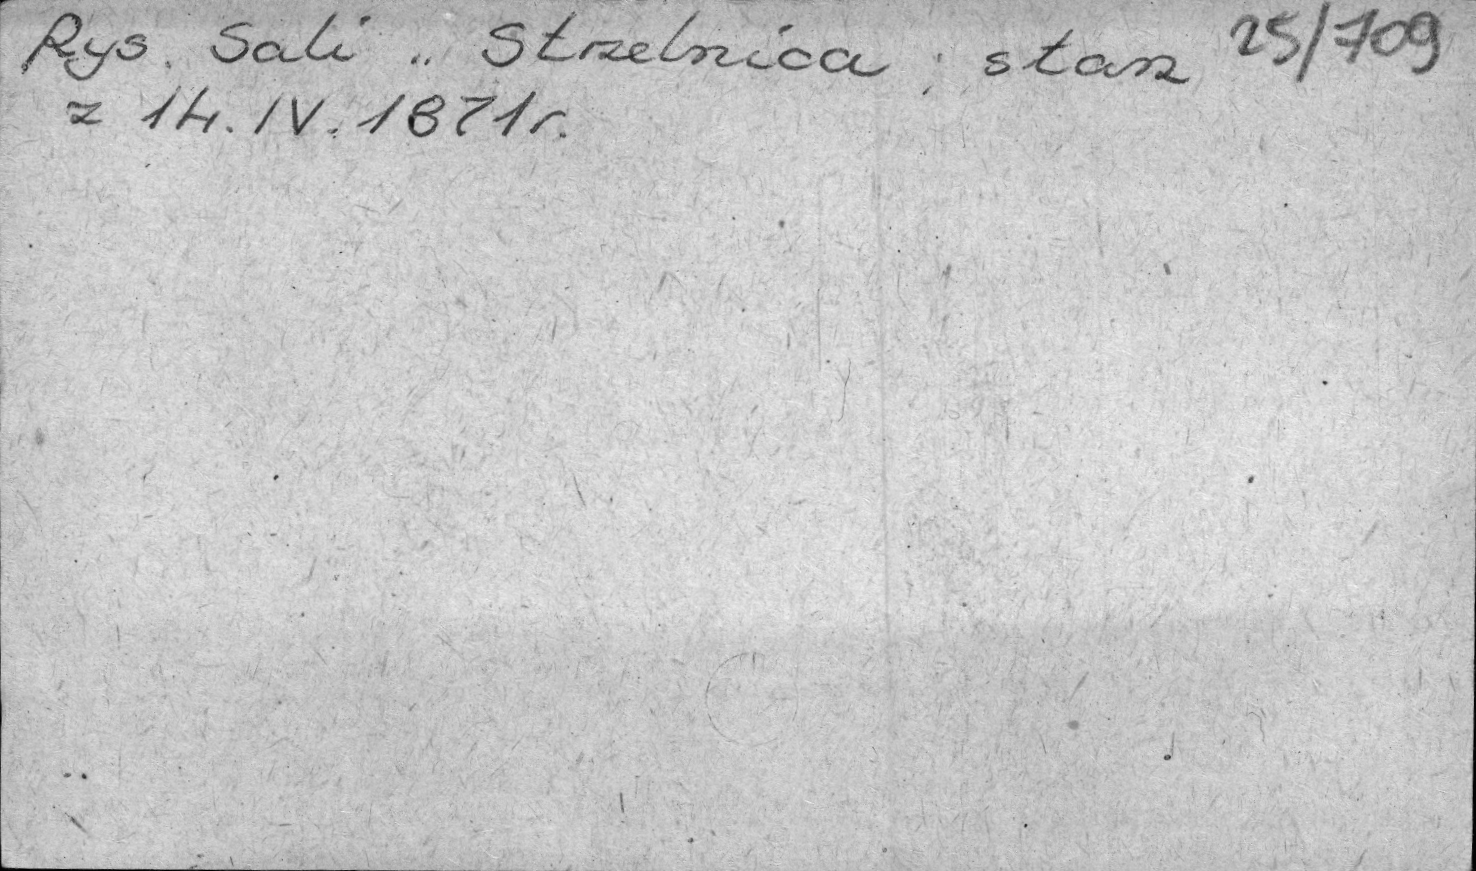 Rys. Sali „Strzelnica, stan 25/709
z 14.IV.1871r.